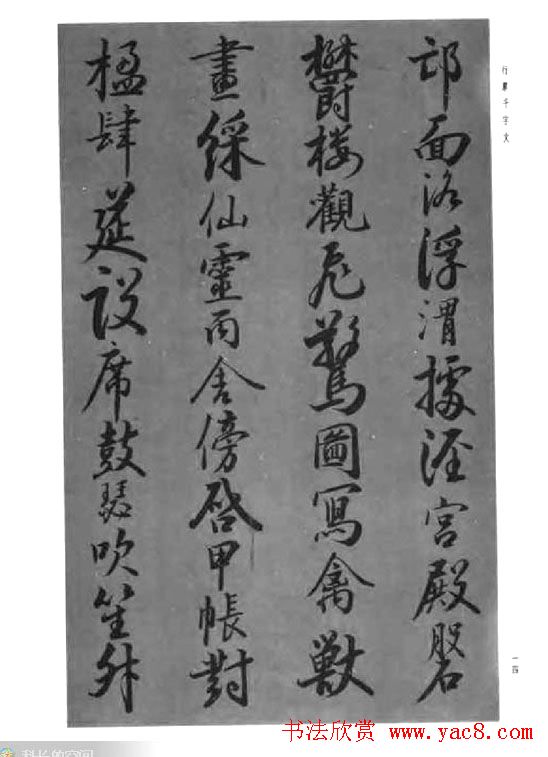 行書千字文
邙面洛浮渭據涇宮殿磐
欝楼觀飛驚圖寫禽獸
畫綵仙靈丙舍傍啓甲帳對
楹肆莚設席鼓瑟吹笙升
一四
书法欣赏 www.yac8.com
科长的空间